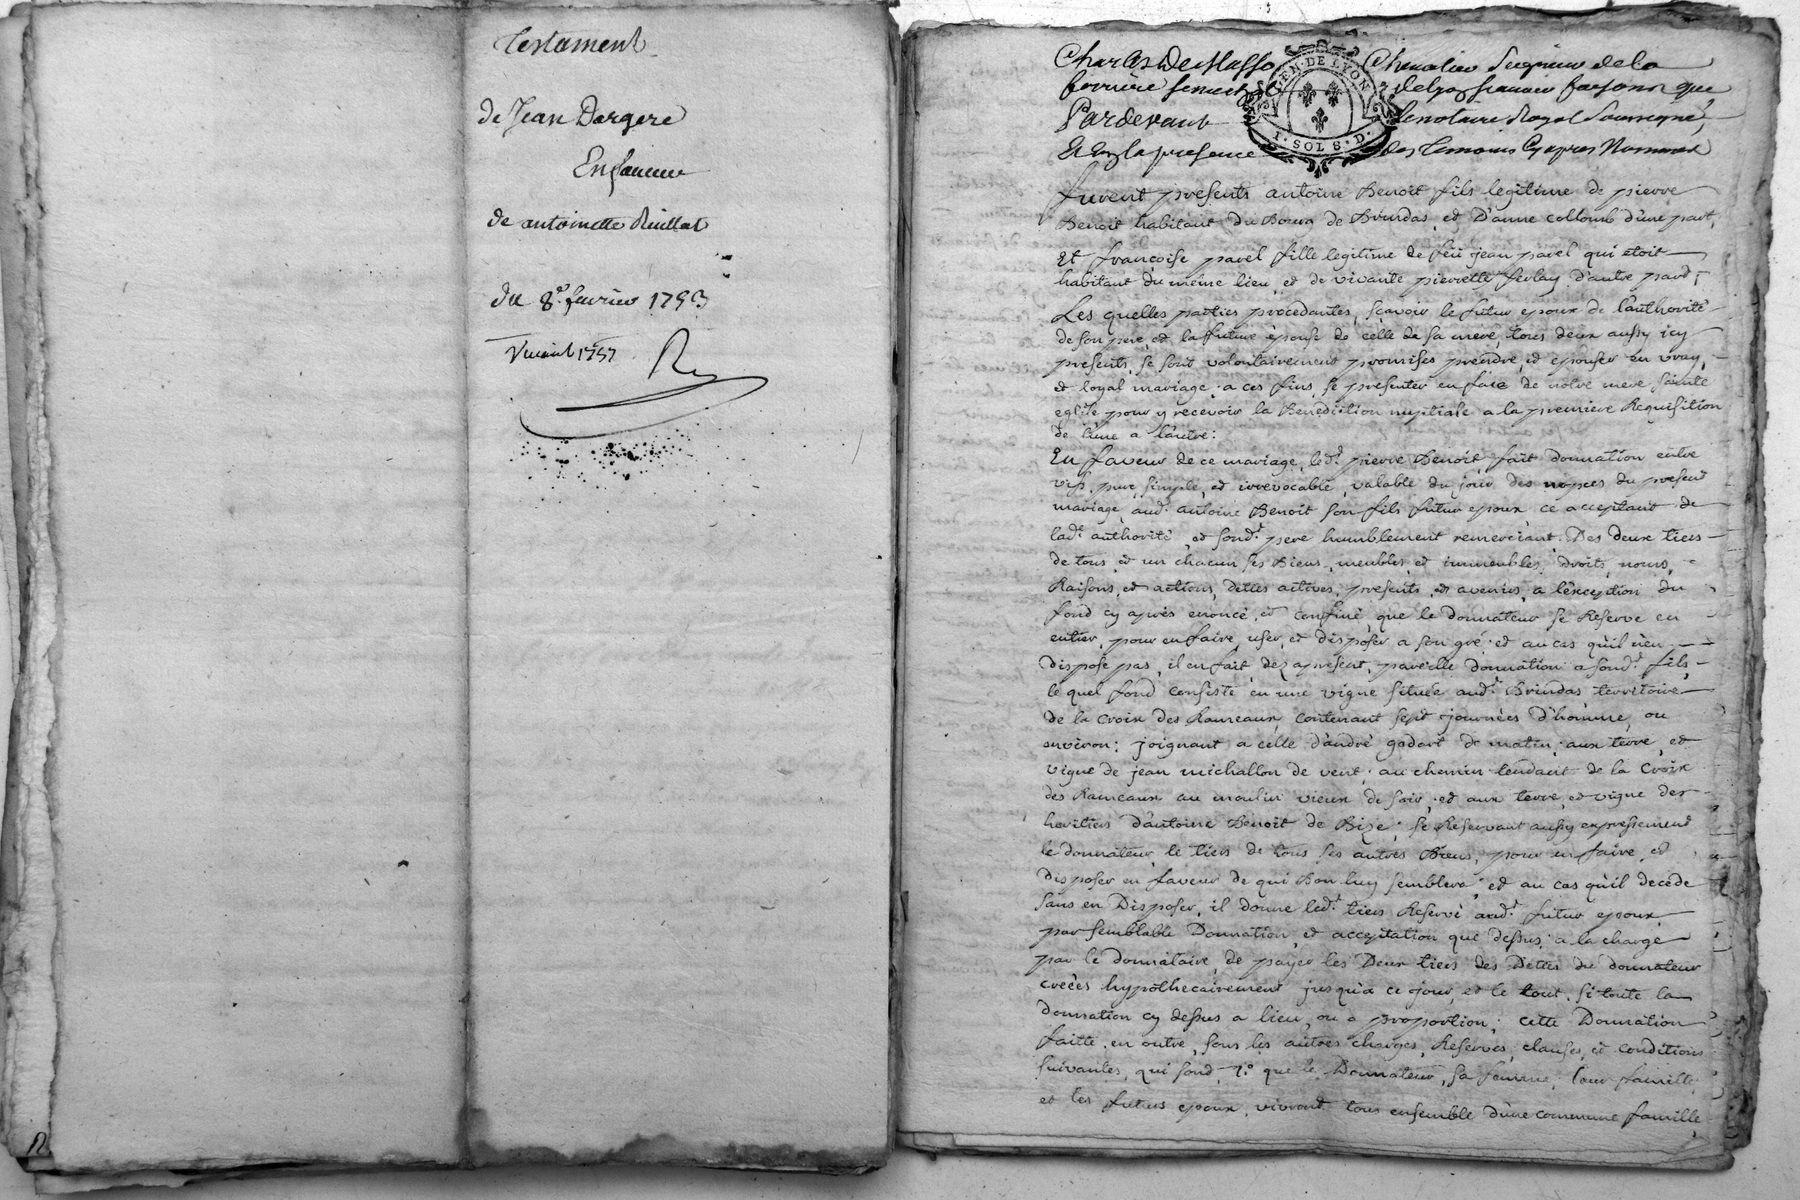 Testament
de Jean Dargere
En faveur
de antoinette Rivillat
du 8e fevrier 1753
Vivant 1757
GEN. DE LYON
1. SOL 8. D.
Charles de Masso Chevalier Seigneur de la
ferriere senechal de Lyon scavoir faisons que
Pardevant le notaire Royal Soussigné,
Et En la presence des temoins Cy apres Nommés
furent presents antoine Benoit fils legitime de pierre
Benoit habitant du Bourg de Brindas, et d'anne collomb d'une part,
Et françoise pavel fille legitime de feu jean pavel qui etoit
habitant du même lieu, et de vivante pierrette ferlay d'autre part;
Les quelles parties procedantes, scavoir le futur epoux de l'authorité
de son pere, et la future epouse de celle de sa mere, tous deux aussy icy
presents, se sont volontairement promises prendre, et epouser en vray,
et loyal mariage, a ces fins, se presenter en face de notre mere sainte
eglise pour y recevoir la Benediction nuptiale a la premiere Requisition
de l'une a l'autre:
En faveur de ce mariage, led.t pierre Benoit fait donnation entre
vifs, pure, simple, et irrevocable, valable du jour des nopces du present
mariage, aud.t antoine Benoit son fils futur epoux ce acceptant de
lad.te authorité, et sond.t pere humblement remerciant. Des deux tiers
de tous, et un chacun ses Biens, meubles, et immeubles, droits, noms,
Raisons, et actions, dettes actives, presents, et avenirs, a l'exception du
fond cy après enoncé, et confiné, que le donnateur se Reserve en
entier, pour en faire, user, et disposer a son gré. et au cas qu'il n'en
dispose pas, il en fait dez apresent, pareille donnation a sond.t fils,
le quel fond consiste en une vigne située aud.t Brindas territoire
de la croix des Rameaux, contenant sept journées d'homme, ou
environ: joignant a celle d'andré godart de matin; aux terre, et
vigne de jean michallon de vent; au chemin tendant de la Croix
des Rameaux au moulin vieux de soir, et aux terre, et vigne des
heritiers d'antoine Benoit de Bize; se Reservant aussy expressement
le donnateur, le tiers de tous ses autres Biens, pour en faire, et
disposer en faveur de qui Bon luy semblera; et au cas qu'il decede
sans en Disposer, il donne led.t tiers Reservé aud.t futur epoux
par semblable Donnation, et acceptation que dessus; a la charge
par le donnataire, de payer les Deux tiers des Dettes du donnateur
creées hypothecairement jusqu'a ce jour, et le tout, si toute la
donnation cy dessus a lieu, ou a proportion; cette Donnation
faitte, en outre, sous les autres charges, Reserves, clauses, et conditions
suivantes, qui sont, 1.° que le Donnateur, sa femme, leur famille
et les futurs epoux, vivront tous ensemble d'une commune famille,